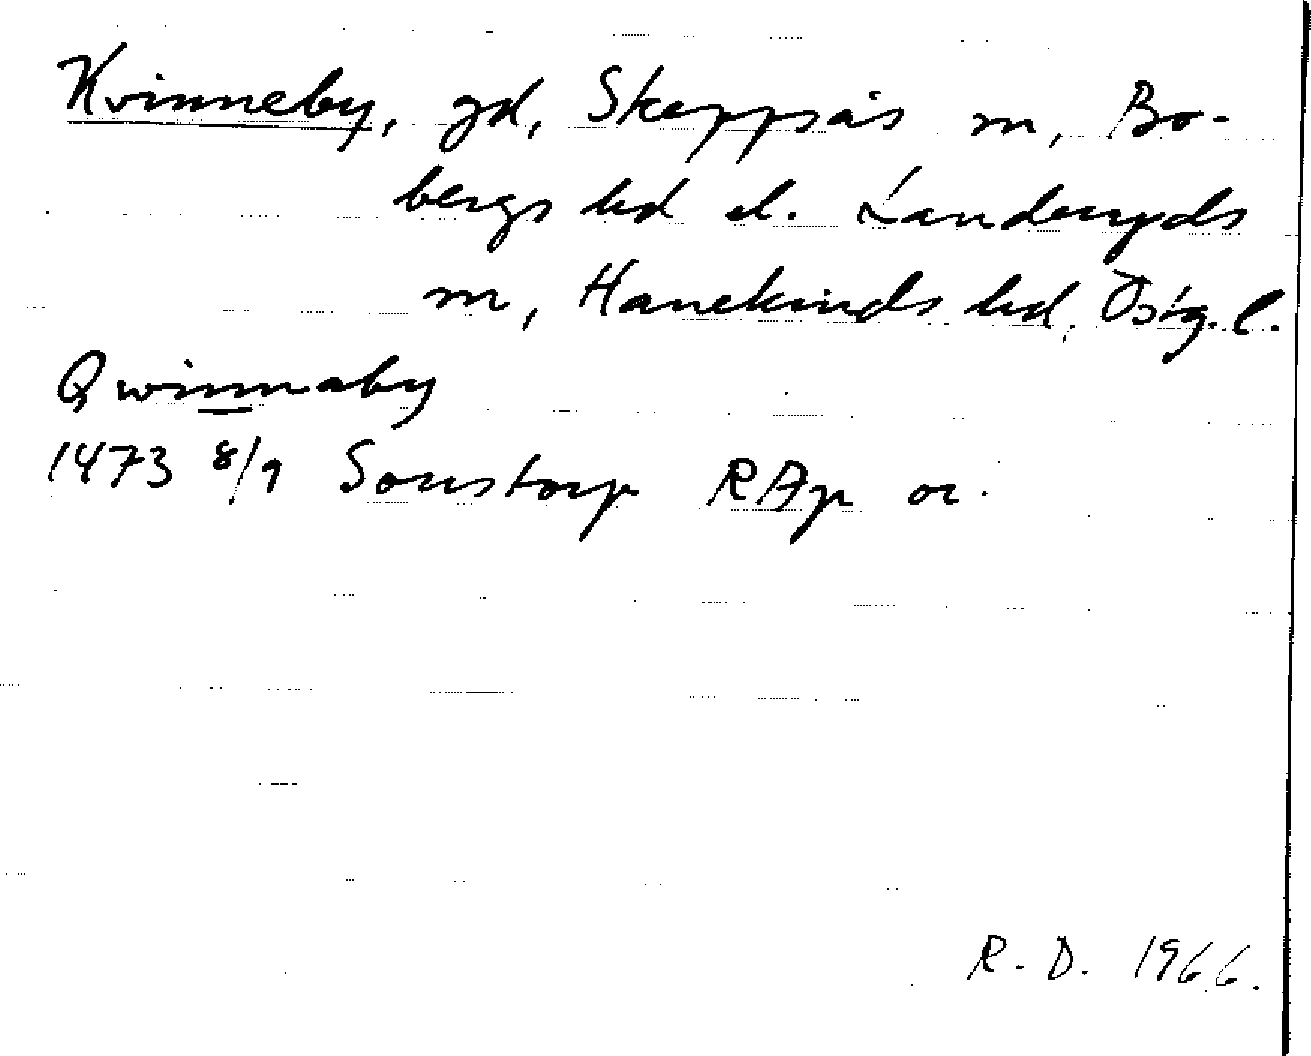 Kvinneby, gd, Skeppsås sn, Bo-
bergs hd el. Landeryds
sn, Hanekinds hd, Östg. l.
Qwinnaby
1473 8/9 Sonstorp RAp or.
R. D. 1966.